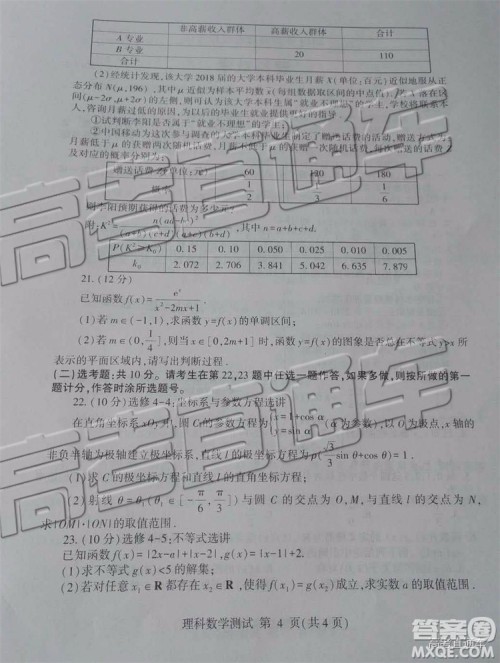 非高薪收入群体 高薪收入群体 合计
A 专业
B 专业 20 110
合计
(2)经统计发现,该大学2018届的大学本科毕业生月薪X(单位:百元)近似地服从正
态分布N(μ,196),其中μ近似为样本平均数
(每组数据取区间的中点值).若X落在区
间(μ-2σ,μ+2σ)的左侧,则可认为该大学本科生属"就业不理想"的学生,学校将联系本
人,咨询月薪过低的原因,为以后的毕业生就业提供更好的指导
①试判断李阳是否属于"就业不理想"的学生;
②中国移动为这次参与调查的大学本科毕业生制定了赠送话费的活动,赠送方式为:
月薪低于μ的获赠两次随机话费,月薪不低于μ的获赠一次随机话费,每次赠送的话费
及对应的概率分别为:
赠送话费(单位:元) 60 120 180
概率
则李阳预期获得的话费为多少元?
附:K²=n(ad-bc)²/(a+b)(c+d)(a+c)(b+d),其中n=a+b+c+d.
P(K²>k₀) 0.15 0.10 0.050 0.025 0.010 0.005
k₀ 2.072 2.706 3.841 5.042 6.635 7.879
21.(12分)
已知函数f(x)=eˣ/x²-2mx+1.
(1)若m∈(-1,1),求函数y=f(x)的单调区间;
(2)若m∈(0,1/4],则当x∈[0,2m+1]时,函数y=f(x)的图象是否总在不等式y>x所
表示的平面区域内,请写出判断过程.
(二)选考题:共10分。请考生在第22,23题中任选一题作答,如果多做,则按所做的第一
题计分,作答时涂所选题号。
22.(10分)选修4-4:坐标系与参数方程选讲
在直角坐标系xOy中,圆C的参数方程为{x=1+cos α y=sin α,以O为极点,x轴的
非负半轴为极轴建立极坐标系,直线l的极坐标方程为ρ(√3/3 sinθ+cosθ)=1.
(1)求C的极坐标方程和直线l的直角坐标方程;
(2)射线θ=θ₁(θ₁∈[-π/6,π/3])与圆C的交点为O,M,与直线l的交点为N,
求|OM|·|ON|的取值范围.
23.(10分)选修4-5:不等式选讲
已知函数f(x)=|2x-a|+|x-2|,g(x)=|x-1|+2.
(1)求不等式g(x)<5的解集;
(2)若对任意x₁∈R都存在x₂∈R,使得f(x₁)=g(x₂)成立,求实数a的取值范围.
理科数学测试 第4页(共4页)
高考直通车
高考直通车
答案圈
MXQE.COM